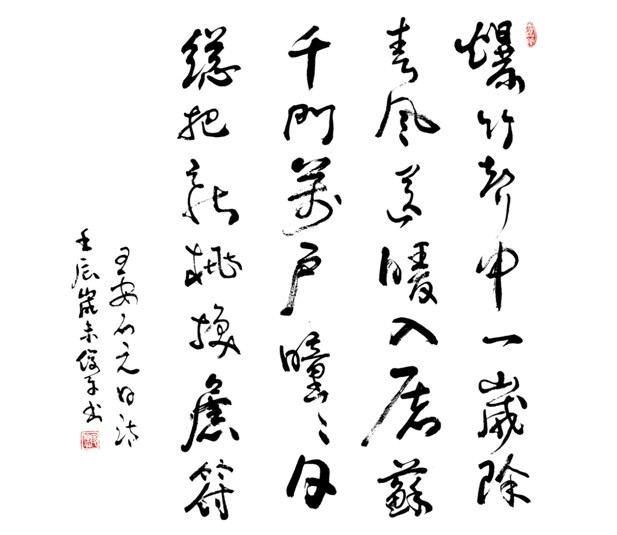 爆竹声中一歲除
春风送暖入屠蘇
千門萬户曈々日
總把新桃換舊符
王安石元日诗
壬辰歲末 书